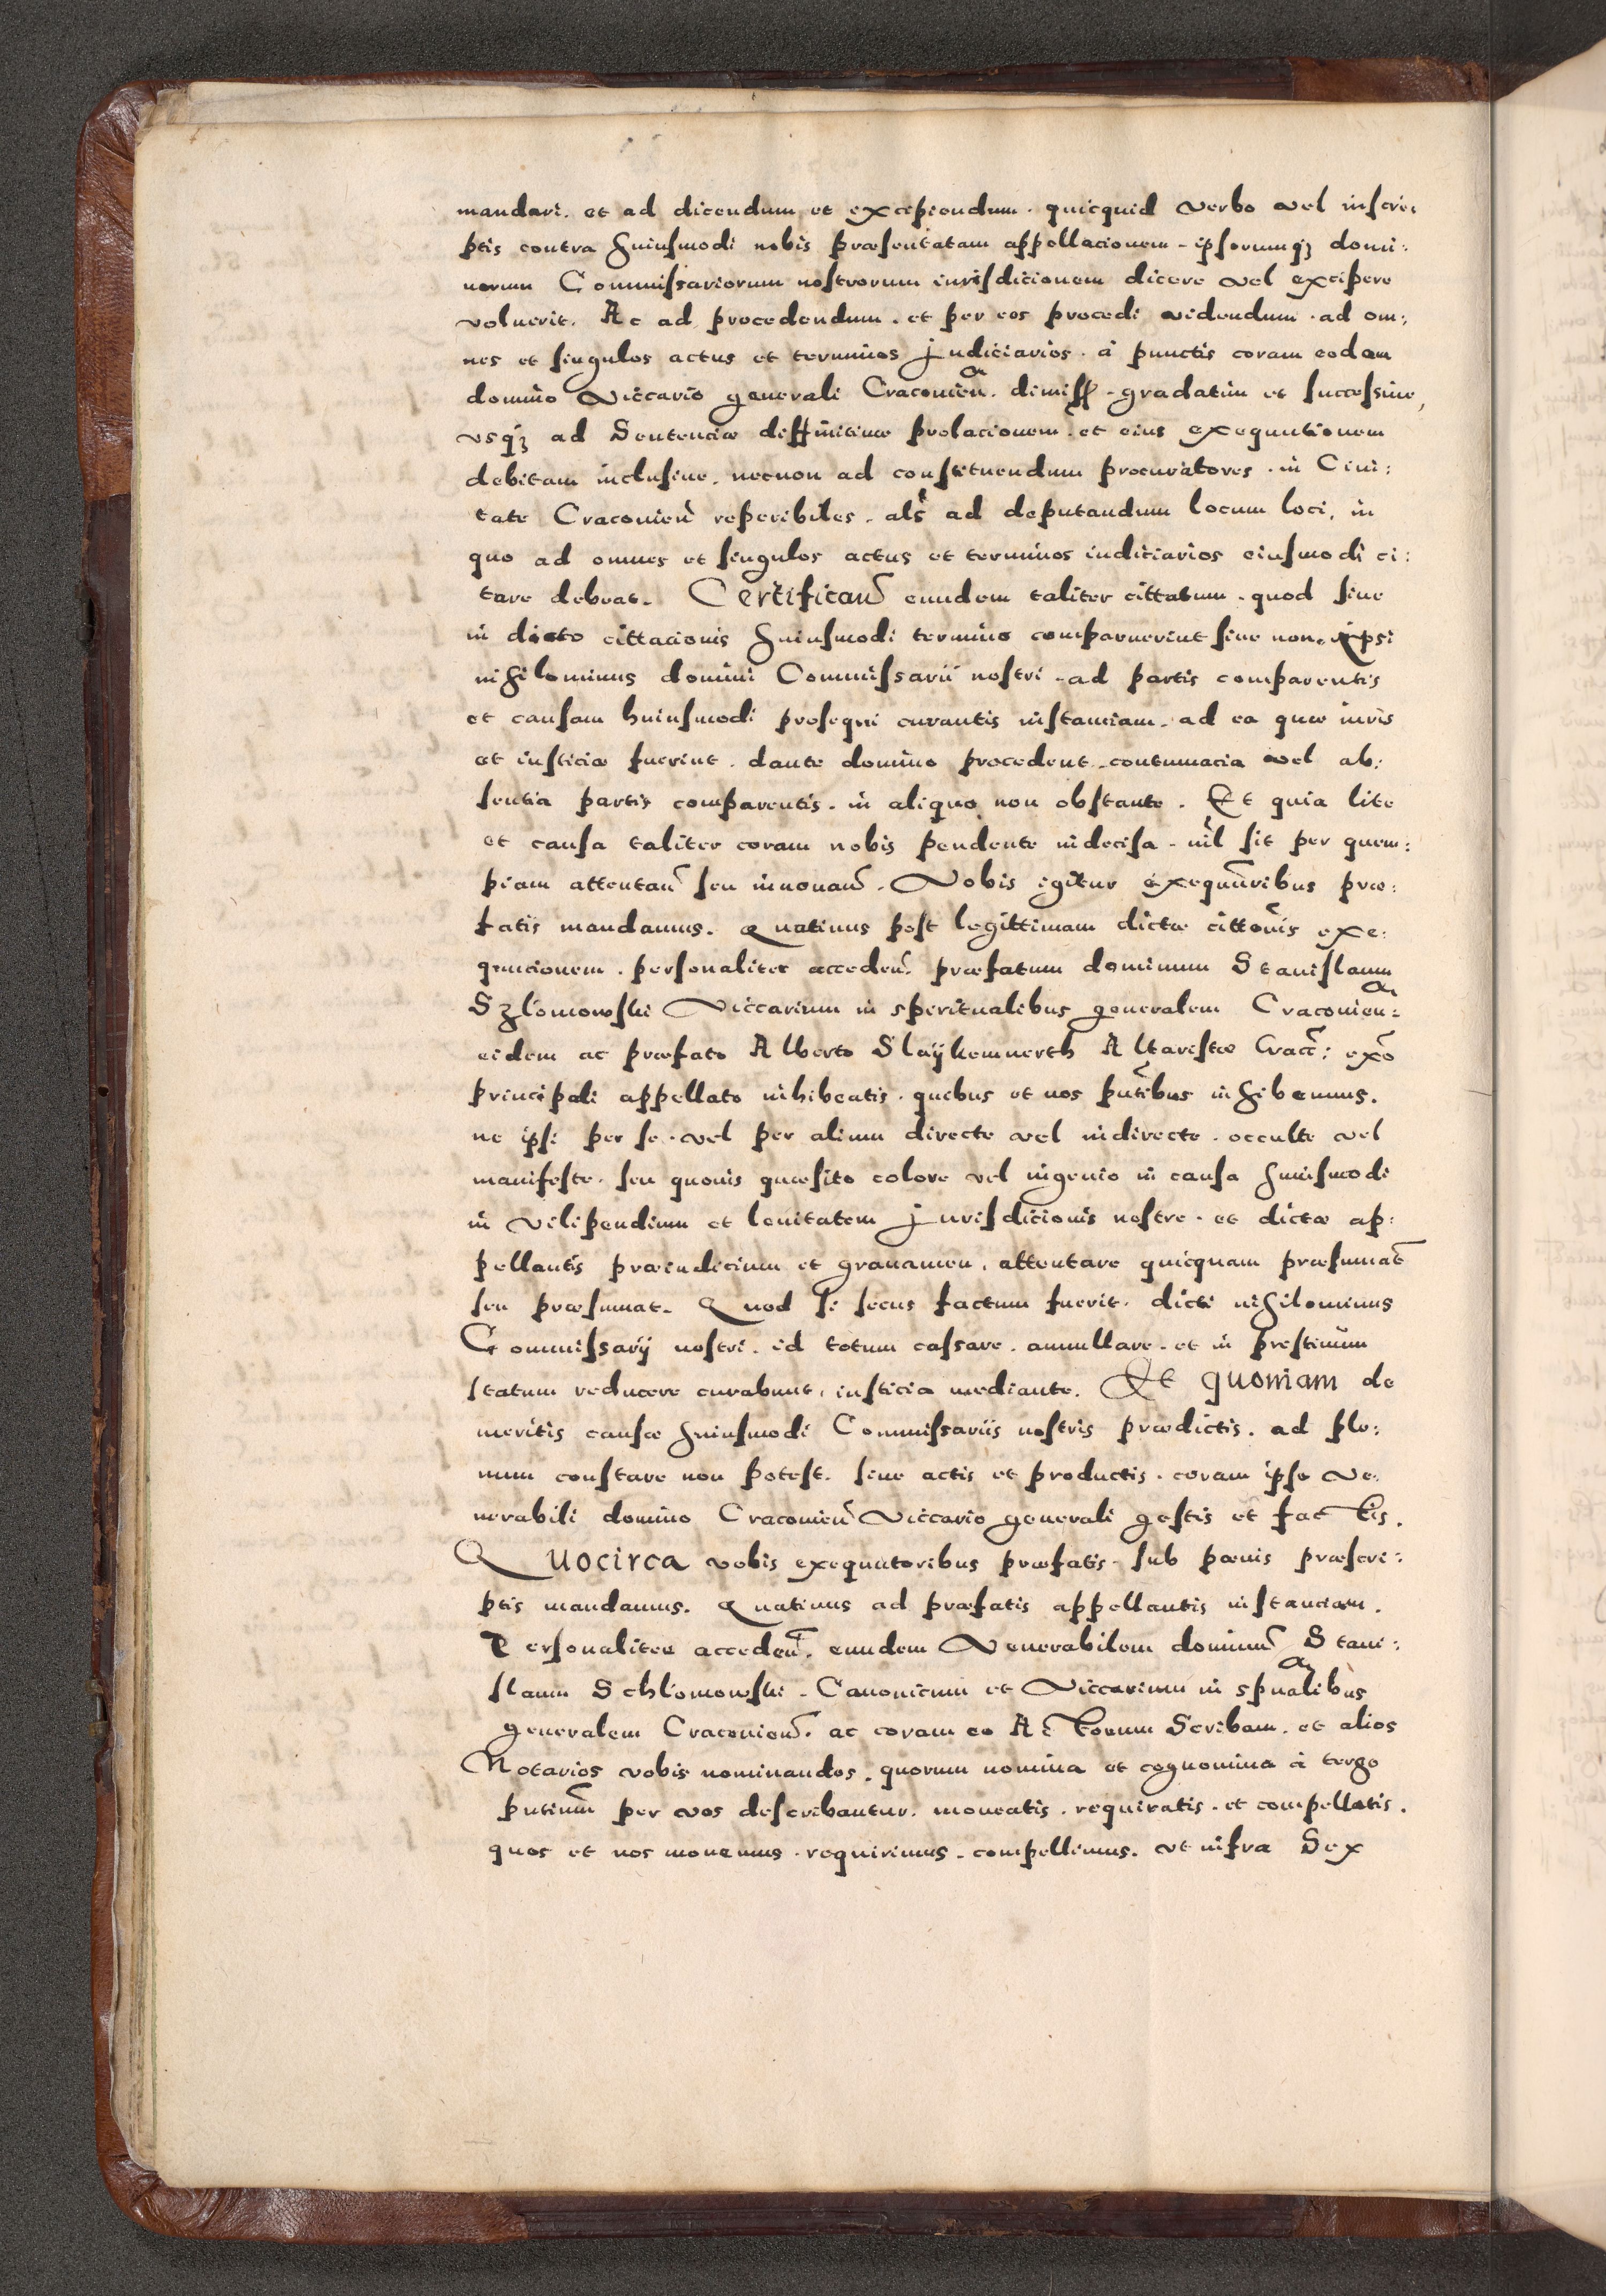 mandari. et ad dicendum et excipiendum. quicquid verbo vel inscri:
ptis contra huiusmodi nobis præsentatam appellacionem. ipsorumq; domi:
norum Commissariorum nostrorum iurisdicionem dicere vel excipere
voluerit. Ac ad procedendum. et per eos procedi videndum. ad om:
nes et singulos actus et terminos judiciarios. à punctis coram eodem
domino Viccario generali Cracovieñ. dimiss. gradatim et successiue,
usq; ad Sentenciæ diffinitiuæ prolacionem. et eius exequutionem
debitam inclusiue. necnon ad constituendum procuratores. in Ciui:
tate Cracovieñ reperibiles. als ad deputandum locum loci, in
quo ad omnes et singulos actus et terminos iudiciarios eiusmodi ci:
tare debeat. Certificañ eundem taliter cittatum. quod siue
in dicto cittacionis huiusmodi termino comparuerint siue non. ipsi
nihilominus domini Commissarii nostri. ad partis comparentis
et causam huiusmodi prosequi curantis instanciam. ad ea quæ iuris
et iusticiæ fuerint. dante domino procedent. contumacia vel ab:
sentia partis comparentis. in aliquo non obstante. Et quia lite
et causa taliter coram nobis pendente indecisa. nil sit per quem:
piam attentañ seu innouañ. Vobis igitur exequũribus præ:
fatis mandamus. Quatinus post legittimam dictæ cittõnis exe:
quucionem. personaliter accedeñ. præfatum dominum Stanislaum
Szlomowski Viccarium in speritualibus generalem Cracovien:
eidem ac præfato Alberto Slaÿkemnerth Altaristæ Cracc: exõ
principali appellato inhibeatis. quibus et nos pñtibus inhibemus.
ne ipsi per se. vel per alium directe vel indirecte. occulte vel
manifeste. seu quouis quæsito colore vel ingenio in causa huiusmodi
in vilipendium et leuitatem jurisdicionis nostre. et dictæ ap:
pellantis præiudicium et grauamen. attentare quicquam præsumat
seu præsumat. Quod si secus factum fuerit. dicti nihilominus
Commissarÿ nostri. id totum cassare. annullare. et in prestinum
statum reducere curabunt, iusticia mediante. Et quoniam de
meritis causæ huiusmodi Commissariis nostris prædictis. ad ple:
num constare non potest. sine actis et productis. coram ipso Ve:
nerabili domino Cracovieñ Viccario generali gestis et factis.
Quocirca vobis exequutoribus præfatis. sub pœnis præscri:
ptis mandamus. Quatinus ad præfatis appellantis instanciam.
Personaliter accedeñ. eundem Venerabilem dominũ Stani:
slaum Schlomowski. Canonicum et Viccarium in spũalibus
generalem Cracovieñ. ac coram eo Actorum Scribam. et alios
Notarios vobis nominandos. quorum nomina et cognomina à tergo
pñtium per vos describantur. moneatis. requiratis. et compellatis.
quos et nos monemus. requirimus. compellimus. ut infra Sex